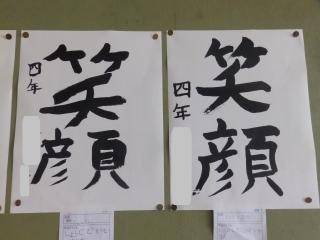 笑顔
四年
笑顔
四年